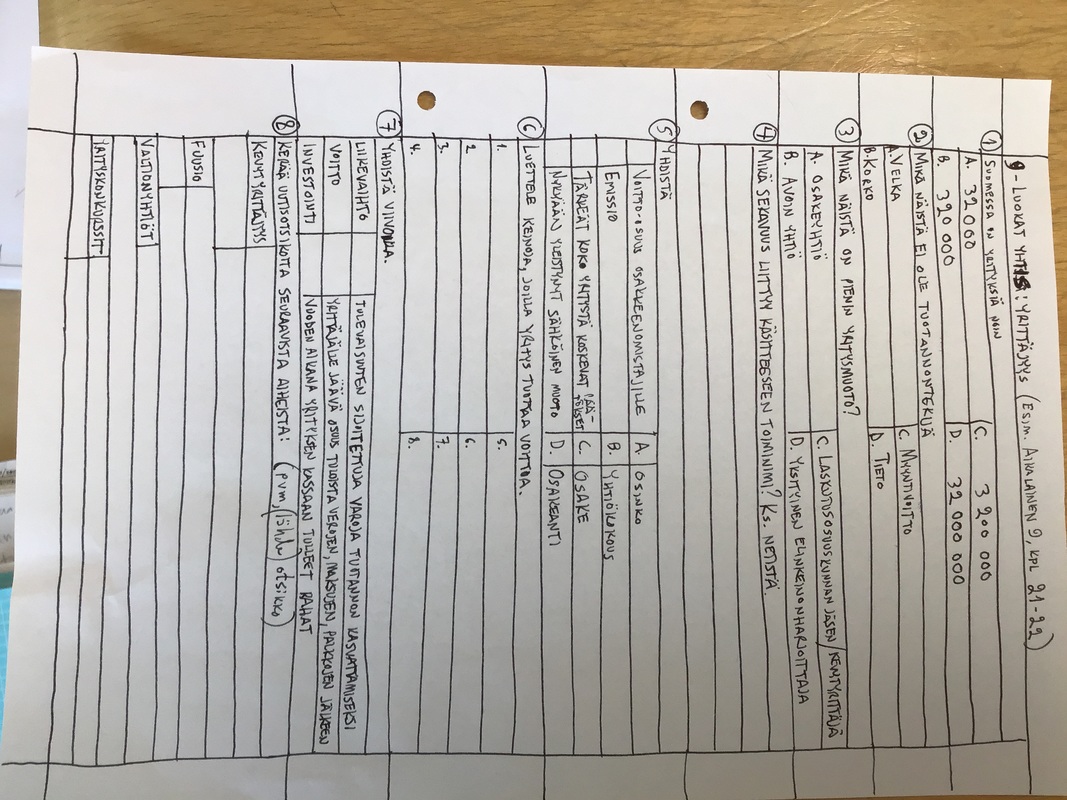 9-LUOKAT YHTIS: YRITTÄJYYS (ESIM. AIKALAINEN 9, KPL 21-22)
① SUOMESSA ON YRITYKSIÄ NOIN
A. 32000
C. 3 200 000
B. 320 000
D. 32 000 000
② MIKÄ NÄISTÄ EI OLE TUOTANNONTEKIJÄ
A. VELKA
C. MYYNTIVOITTO
B. KORKO
D. TIETO
③ MIKÄ NÄISTÄ ON PIENIN YRITYSMUOTO?
A. OSAKEYHTIÖ
C. LASKUTUSOSUUSKUNNAN JÄSEN/KEVYTYRITTÄJÄ
B. AVOIN YHTIÖ
D. YKSITYINEN ELINKEINONHARJOITTAJA
④ MIKÄ SEKAVUUS LIITTYY KÄSITTEESEEN TOIMINIMI? KS. NETISTÄ.
⑤ YHDISTÄ
VOITTO-OSUUS OSAKKEENOMISTAJILLE
A. OSINKO
EMISSIO
B. YHTIÖKOKOUS
TÄRKEÄT KOKO YRITYSTÄ KOSKEVAT PÄÄ-TÖKSET
C. OSAKE
NYKYÄÄN YLEISTYNYT SÄHKÖINEN MUOTO
D. OSAKEANTI
⑥ LUETTELE KEINOJA, JOILLA YRITYS TUOTTAA VOITTOA.
1.
5.
2
6.
3.
7.
4.
8.
⑦ YHDISTÄ VIIVOILLA.
LIIKEVAIHTO
TULEVAISUUTEEN SIJOITETTUJA VAROJA TUOTANNON KASVATTAMISEKSI
VOITTO
YRITTÄJÄLLE JÄÄVÄ OSUUS TULOISTA VEROJEN, MAKSUJEN, PALKKOJEN JÄLKEEN
INVESTOINTI
VUODEN AIKANA YRITYKSEN KASSAAN TULLEET RAHAT
⑧ KERÄÄ UUTISOTSIKOITA SEURAAVISTA AIHEISTA: (pvm, lähde, otsikko)
KEVYTYRITTÄJYYS
FUUSIO
VALTIONYHTIÖT
YRITYSKONKURSSIT